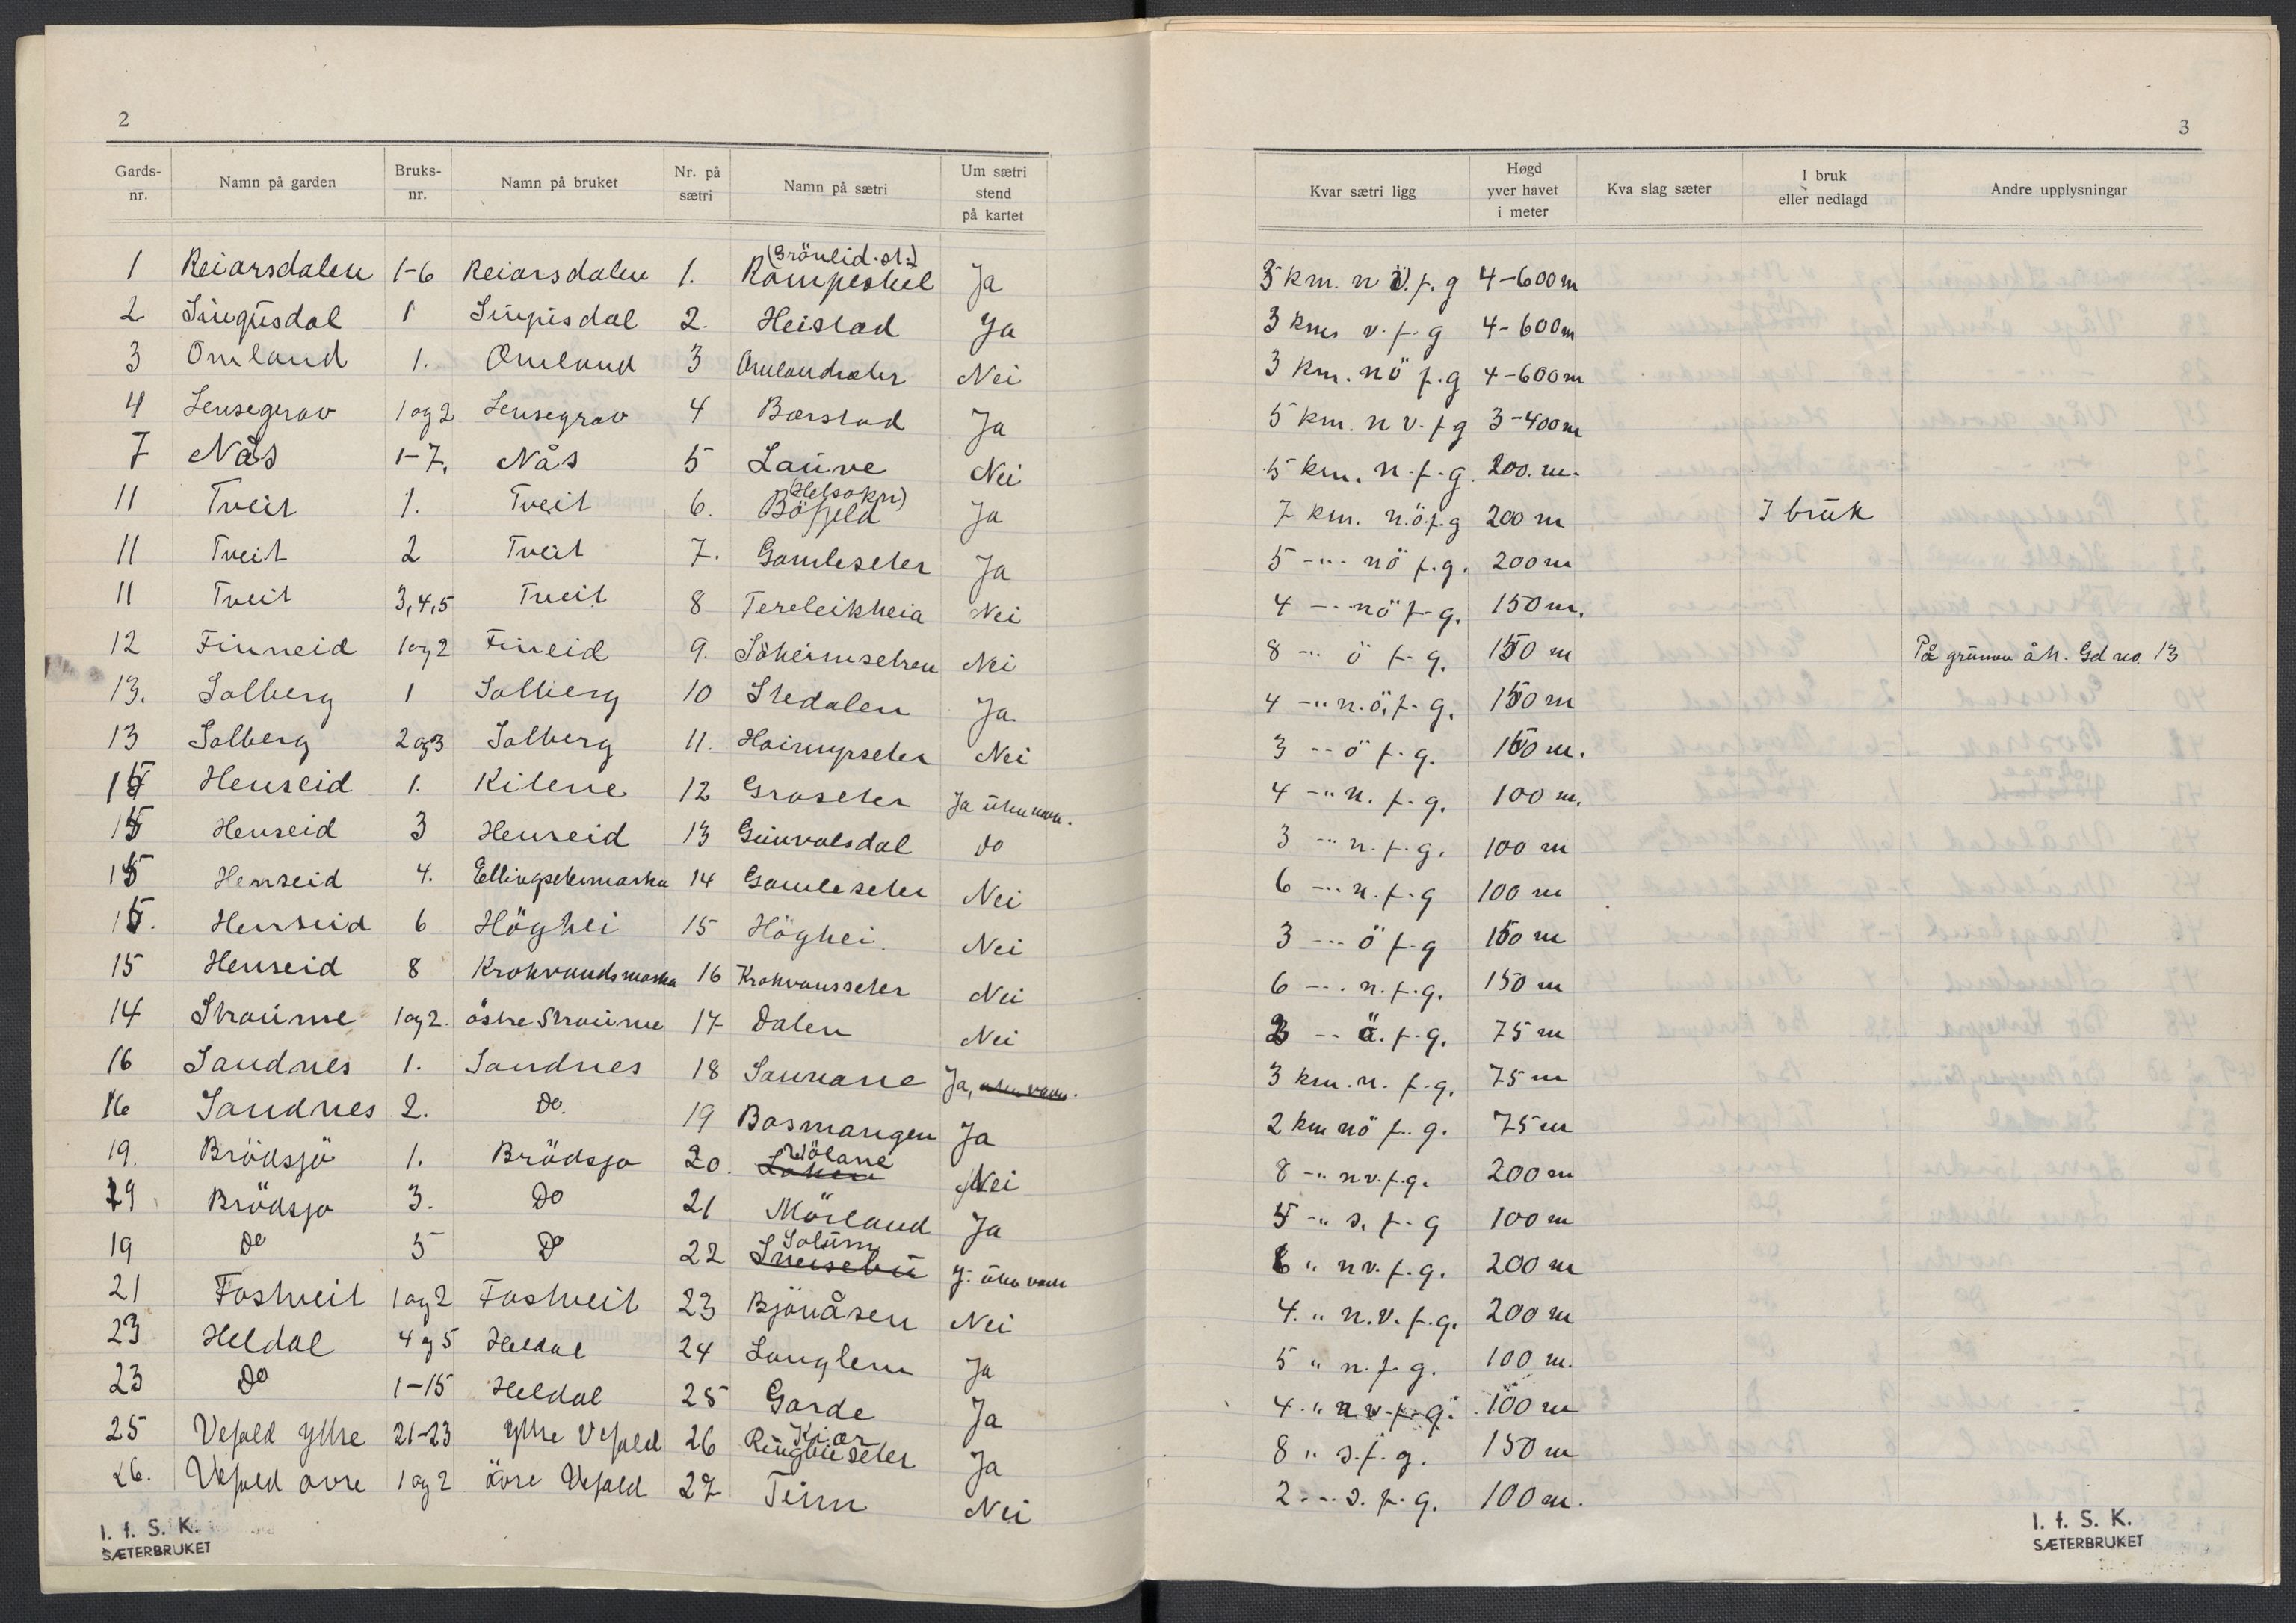 2
Gards-nr. Namn på garden Bruks-nr. Namn på bruket Nr. på sætri Namn på sætri Um sætri stend på kartet
(Grönlid.st.)
1 Reiarsdalen 1-6 Reiarsdalen 1. Rompestul Ja
2 1 2. Heistad Ja
3 Omland 1. Omland 3 Omlandseter Nei
4 Lensegrav 1 og 2 Lensegrav 4 Barstad Ja
7 Nås 1-7. Nås 5 Lauve Nei
11 Tveit 1. Tveit 6. Böfjeld Ja
11 Tveit 2 Tveit 7. Gamleseter Ja
11 Tveit 3,4,5 Tveit 8 Tereleikheia Nei
12 Finneid 1 og 2 Fineid 9. Söheimsetren Nei
13. Solberg 1 Solberg 10 Stedalen Ja
13 Solberg 2 og 3 Solberg 11. Nei
15 Henseid 1. Kilene 12 Graseter Ja uten navn.
15 Henseid 3 Henseid 13 Gunvalsdal do
15 Henseid 4. Ellingsetermarka 14 Gamleseter Nei
15. Henseid 6 Höghei 15 Höghei. Nei
15 Henseid 8 Krokvandsmarka 16 Krokvansseter Nei
14 Straume 1 og 2. östre Straume 17 Dalen Nei
16 Sandnes 1. Sandnes 18 Sannane Ja, uten navn.
16 Sandnes 2. Do. 19 Bosmangen Ja
19. Brödsjö 1. Brödsjo 20. Nei
19 Brödsjo 3. Do 21 Mörland Ja
Solum
19 Do 5 Do 22 J. uten navn
21 Fostveit 1 og 2 Fostveit 23 Bjönåsen Nei
23 Heldal 4 og 5 Heldal 24 Langlem Ja
23 Do 1-15 Heldal 25 Garde Ja
25 Vefald ytre 21-23 Ytre Vefald 26 Ringbuseter Ja
26. Vefald övre 1 og 2 övre Vefald 27 Tinn Nei
I. f. S. K.
SÆTERBRUKET
3
Kvar sætri ligg Høgd yver havet i meter Kva slag sæter I bruk eller nedlagd Andre upplysningar
3 km. n ö. f. g 4-600 m
3 km v. f. g 4-600m
3 km. nö f. g 4-600 m
5 km. n v. f g 3-400 m
5 km. n. f. g. 200. m.
7 km. n.ö.f.g 200 m I bruk
5 -"- nö f. g. 200 m
4 -"- nö f. g. 150 m.
8 -" ö f. g. 150 m På grunn åt. Gd no. 13
4 -" n.ö.f. g. 150 m
3 -" ö f. g. 150 m.
4 -" n. f. g. 100 m.
3 -" n. f. g. 100 m
6 -"- n. f. g 100 m
3 -"- ö f. g 150 m
6 -"- n. f. g. 150 m
3 -" ö. f. g. 75 m
3 km. n. f. g. 75 m
2 km nö f. g. 75 m
8 -" nv. f. g. 200 m
5 -" s. f. g 100 m
6 " nv. f. g. 200 m
4. " n.v. f. g. 200 m
5 " n. f. g. 100 m.
4 " n v. f. g. 100 m
8 " s. f. g. 150 m
2 -"- s. f. g. 100 m.
I. f. S. K.
SÆTERBRUKET